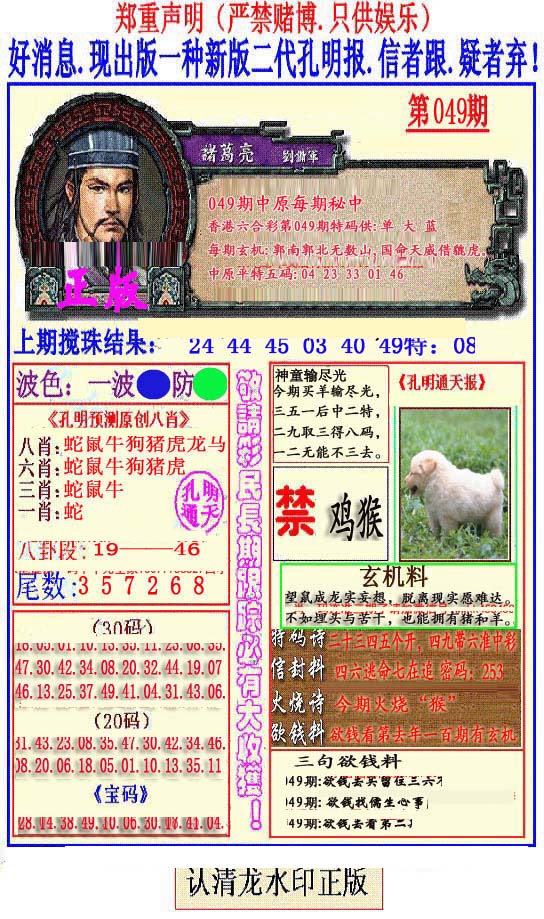 郑重声明（严禁赌博.只供娱乐）
好消息.现出版一种新版二代孔明报.信者跟.疑者弃!
第049期
諸葛亮 劉備軍
049期中原每期秘中
香港六合彩第049期特码供: 单 大 蓝
每期玄机: 郭南郭北无数山, 国命天威借貔虎.
中原平特五码: 04 23 33 01 46
正版
上期搅珠结果: 24 44 45 03 40 49特: 08
波色: 一波 防
《孔明预测原创八肖》
八肖: 蛇鼠牛狗猪虎龙马
六肖: 蛇鼠牛狗猪虎
三肖: 蛇鼠牛
一肖: 蛇
孔明通天
八卦段: 19——46
尾数: 3 5 7 2 6 8
(30码)
18.05.01.10.13.35.11.23.08.35.
47.30.42.34.08.20.32.44.19.07
46.13.25.37.49.41.04.31.43.06.
(20码)
31.43.23.08.35.47.30.42.34.46.
08.20.06.18.05.01.10.13.35.11
《宝码》
28.14.38.49.10.06.30.18.41.04.
敬請彩民長期跟踪必有大收獲!
神童输尽光
今期买羊输尽光,
三五一后中二特,
二九取三得八码,
一二无能不三去。
《孔明通天报》
禁 鸡猴
玄机料
望鼠成龙实妄想, 脱离现实愿难达。
不如埋头与苦干, 也能拥有猪和羊。
特码诗 二十三四五个开, 四九带六准中彩
信封料 四六逃命七在追 密码: 253
火烧诗 今期火烧“猴”
欲钱料 欲钱看第去年一百期有玄机
三句欲钱料
049期:欲钱去买留住三六
049期:欲钱找儒生心事
049期:欲钱去看第二
认清龙水印正版